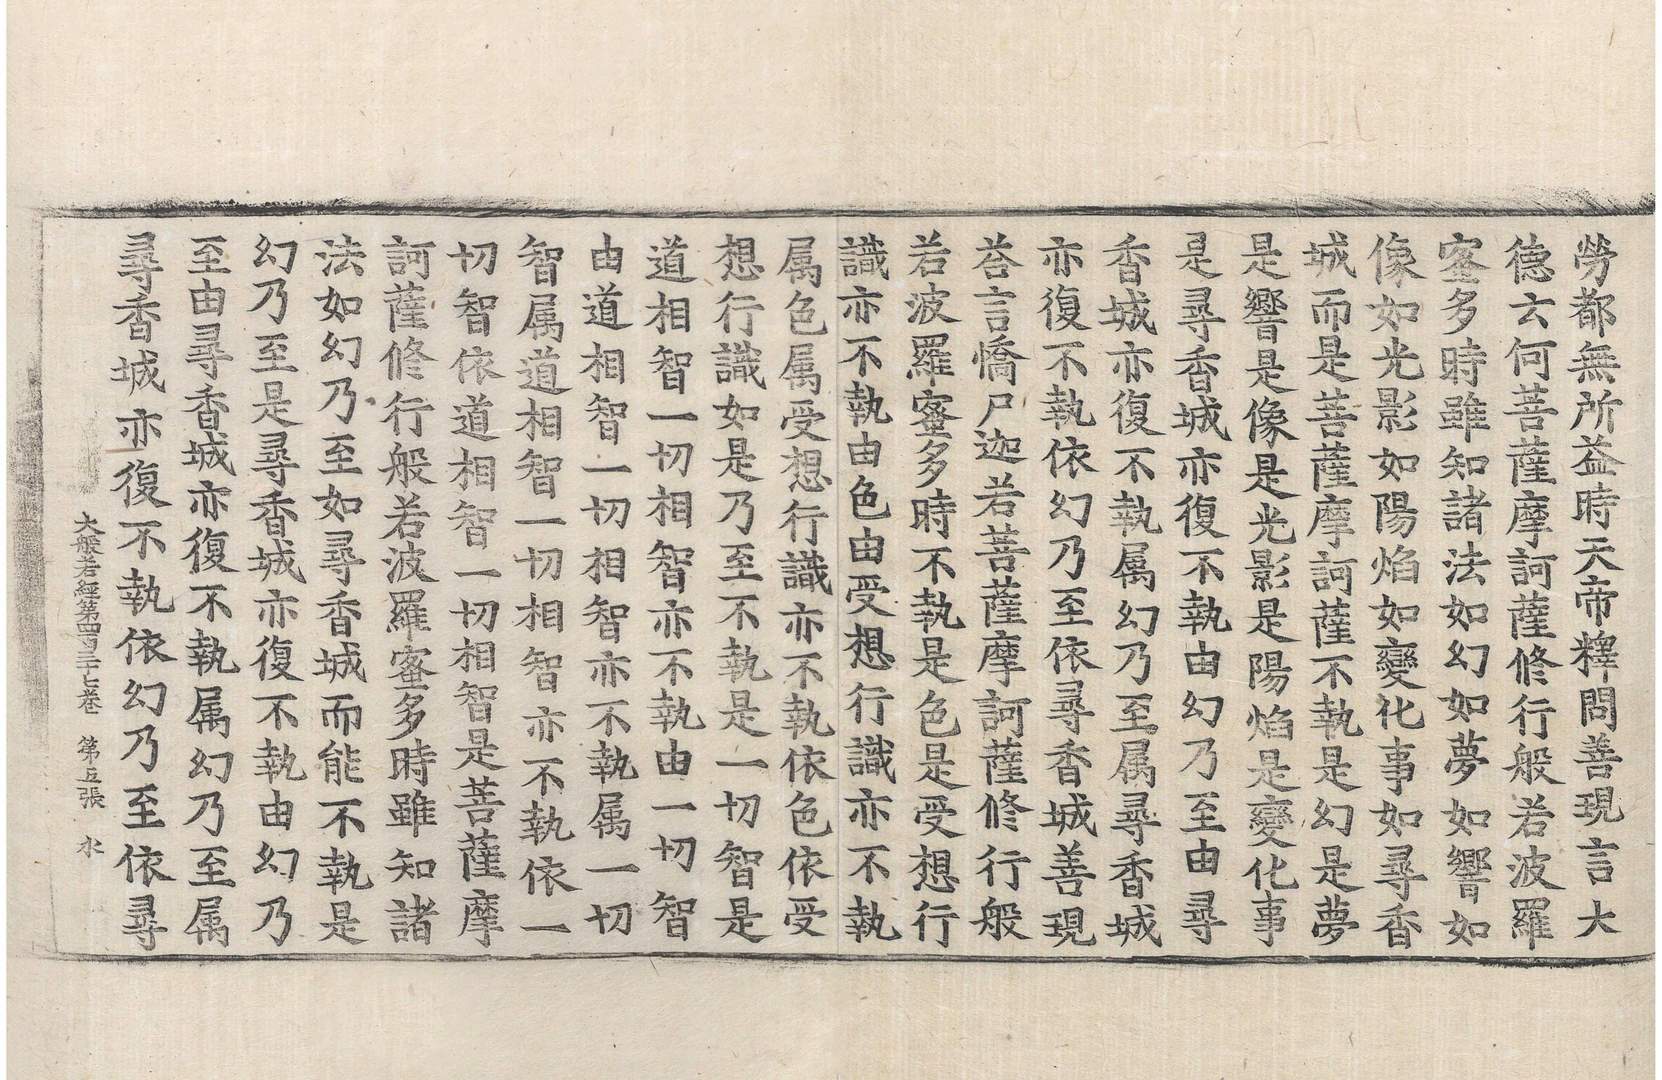 勞都無所益時天帝釋問善現言大
德云何菩薩摩訶薩修行般若波羅
蜜多時雖知諸法如幻如夢如響如
像如光影如陽焰如變化事如尋香
城而是菩薩摩訶薩不執是幻是夢
是響是像是光影是陽焰是變化事
是尋香城亦復不執由幻乃至由尋
香城亦復不執属幻乃至属尋香城
亦復不執依幻乃至依尋香城善現
荅言憍尸迦若菩薩摩訶薩修行般
若波羅蜜多時不執是色是受想行
識亦不執由色由受想行識亦不執
属色属受想行識亦不執依色依受
想行識如是乃至不執是一切智是
道相智一切相智亦不執由一切智
由道相智一切相智亦不執属一切
智属道相智一切相智亦不執依一
切智依道相智一切相智是菩薩摩
訶薩修行般若波羅蜜多時雖知諸
法如幻乃至如尋香城而能不執是
幻乃至是尋香城亦復不執由幻乃
至由尋香城亦復不執属幻乃至属
尋香城亦復不執依幻乃至依尋
大般若經第四百三十七卷 第五張 水